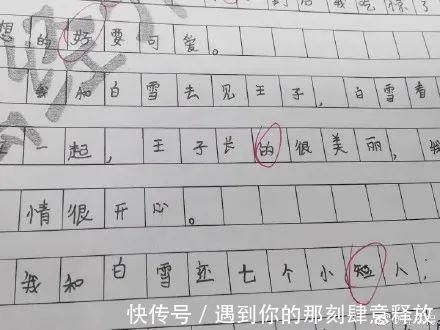 想的好要可爱。
我和白雪去见王子，白雪看
一起，王子长的很美丽，
情很开心。
我和白雪还七个小短人；
快传号 / 遇到你的那刻肆意释放